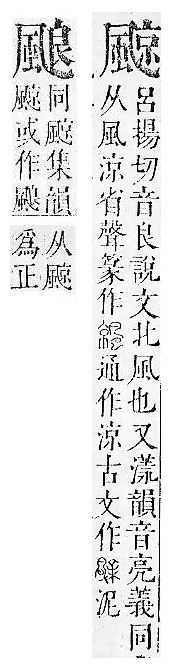 䬅
呂揚切音良說文北風也又漾韻音亮義同
从風涼省聲篆作通作涼古文作泥
同䬅集韻
䬅或作
从䬅
為正